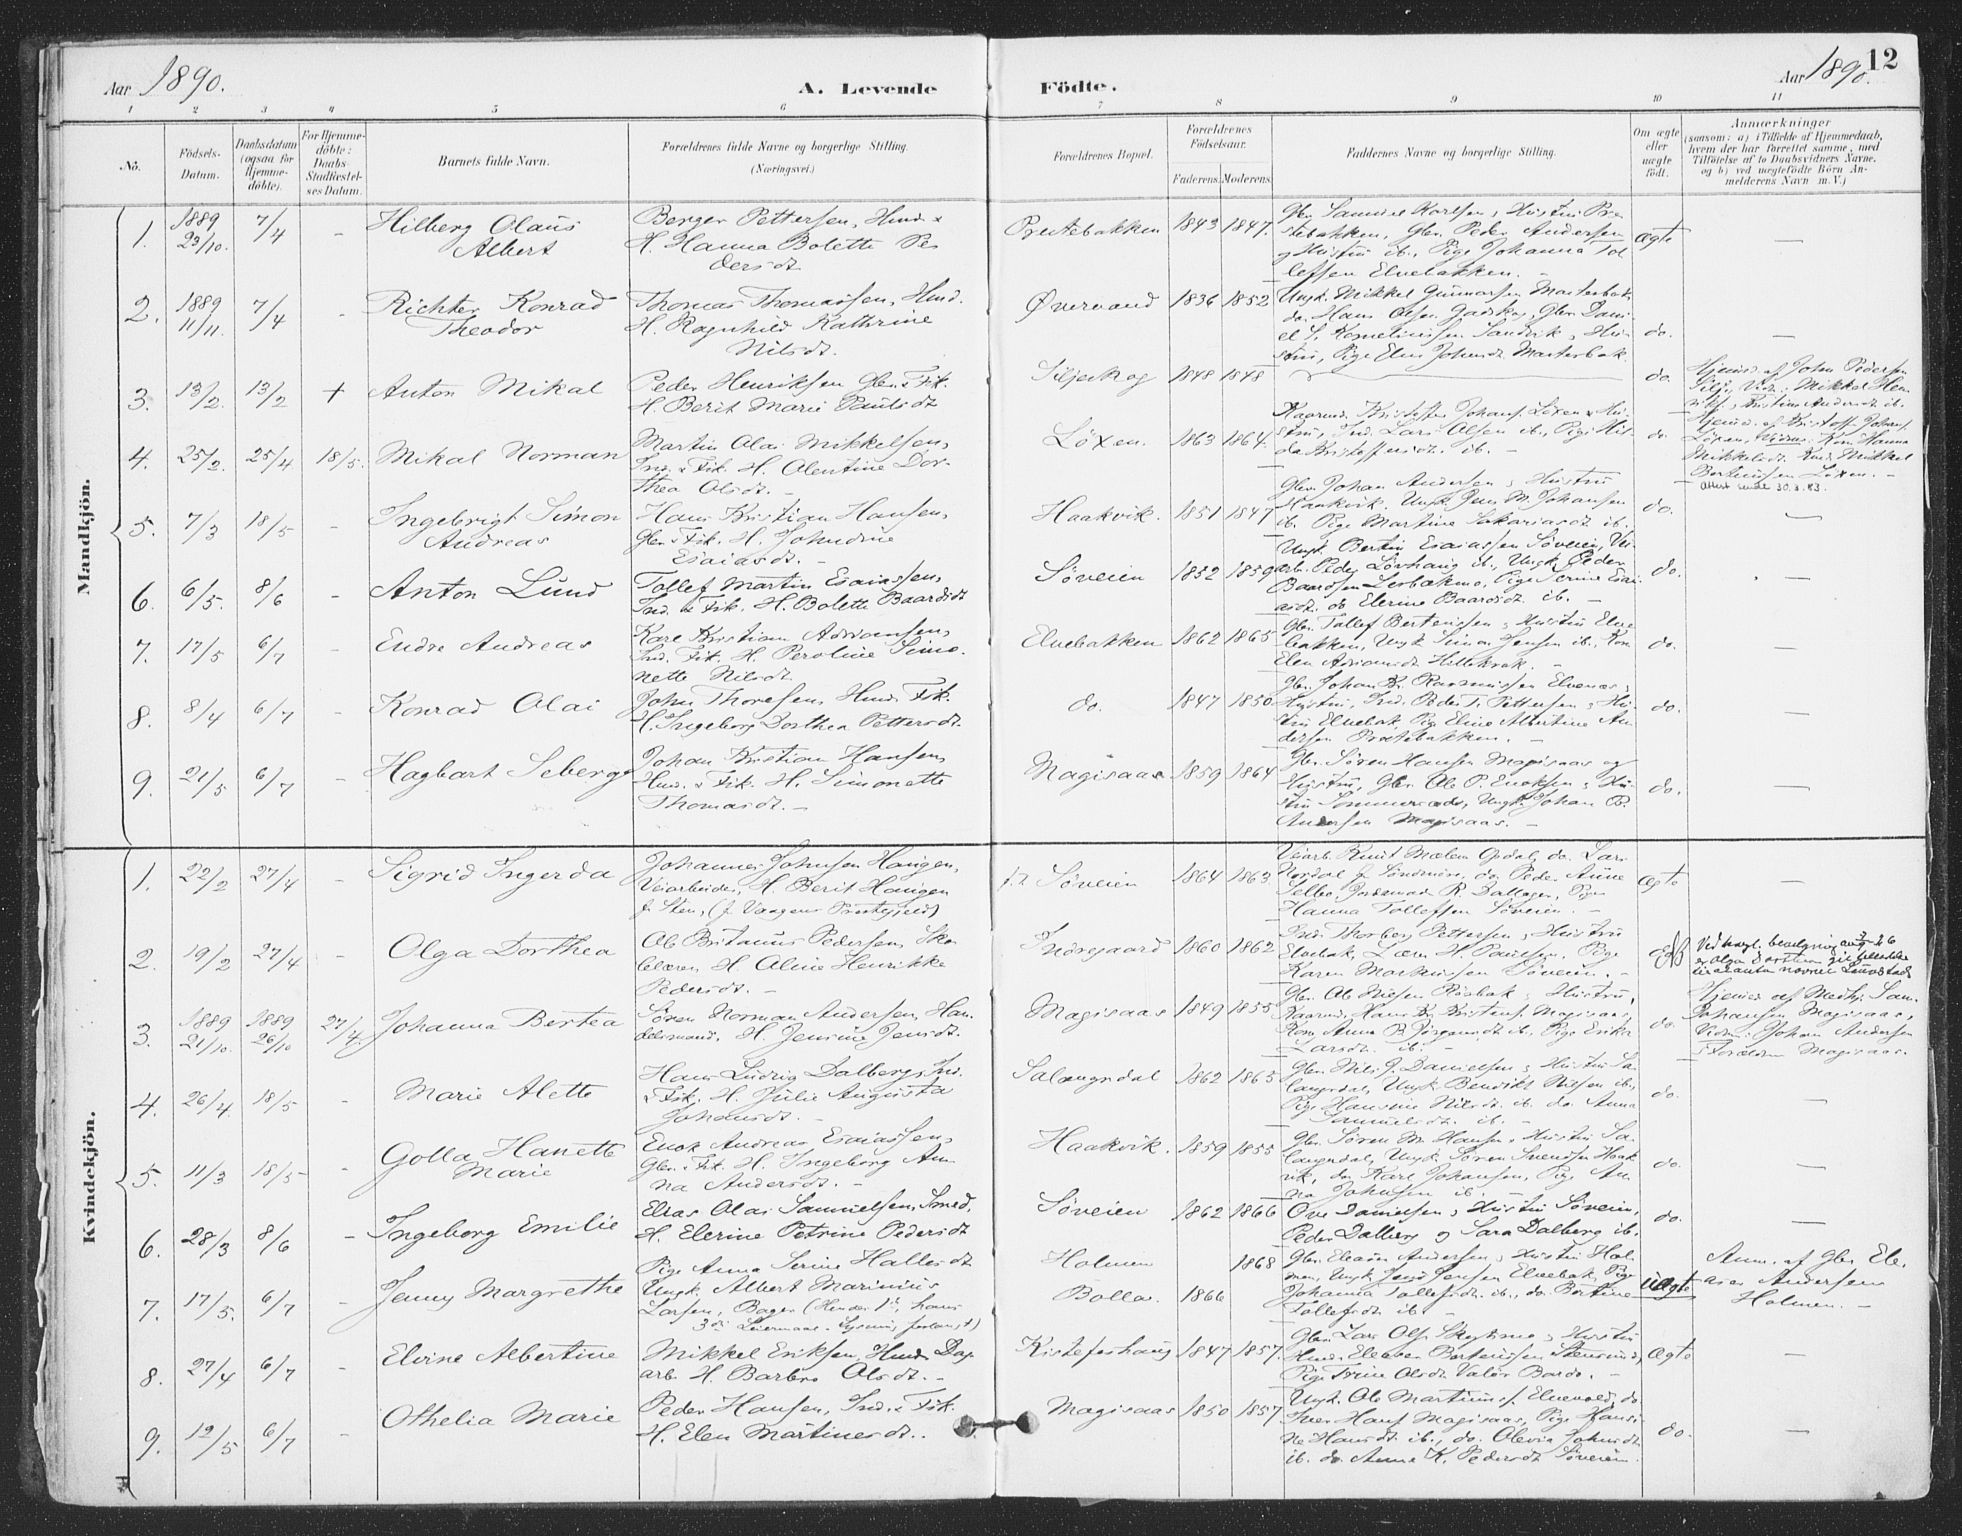 Aar 1890.
A. Levende
Födte.
Aar 1890.
12
1 2 3 4 5 6 7 8 9 10 11
No.
Födsels-
Datum.
Daabsdatum
(ogsaa for
Hjemme-
döbte).
For Hjemme-
döbte:
Daabs-
Stadfæstel-
ses Datum.
Barnets fulde Navn.
Forældrenes fulde Navne og borgerlige Stilling.
(Næringsvei.)
Forældrenes Bopæl.
Forældrenes
Födselsaar.
Faderens. Moderens.
Faddernes Navne og borgerlige Stilling.
Om ægte
eller
uægte
födt.
Anmærkninger
(saasom: a) i Tilfælde af Hjemmedaab,
hvem der har forrettet samme, med
Tilföielse af to Daabsvidners Navne,
og b) ved uægtefödte Börn An-
melderens Navn m. V.)
Mandkjön.
1. 1889 23/10. 7/4 - Hilberg Olaus
Albert
Berger Pettersen, Husm. &
H. Hanna Bolette Pe
dersdt.
Præstebakken 1843 1847.
Gbr. Samuel Karlsen & Hustru Præ
stebakken, Gbr. Peder Andersen
og Hustru ib., Pige Johanna Tol
lefsen Elvebakken. -
Ægte —
2. 1889 11/11. 7/4 - Richter Konrad
Theodor
Thomas Thomassen, Husm.
H. Ragnhild Kathrine
Nilsdt.
Øvervand 1836 1852
Ungk. Mikkel Gunnarsen Masterbak,
do. Hans Olsen Gadskog, Gbr. Dani
el S. Kornelinssen Sandvik & Hu-
stru, Pige Elen Johnsdt. Masterbak.
do. —
3. 13/2. 13/2 + Anton Mikal
Peder Henriksen Gbr. & Fisk.
H. Berit Marie Paulsdt
Siljeskog 1848 1848 —
do.
Hjemmed. af John Pedersen
Silj. Vidn: Mikkel Hen
riks., Kristine Andersdt. ib.
4. 25/2. 25/4 18/5. Mikal Norman
Martin Olai Mikkelsen,
Ind. & Fisk. H. Olentine Dor-
thea Olsdt. -
Löxen. 1863 1864.
Kaarmd. Kristoffer Johans. Löxen & Hu-
stru, Ind. Lars Olsen ib., Pige Hil-
da Kristoffersdt. ib. -
do.
Hjemmed. af Kristoff. Johans.
Löxen, Vidner: Kone Hanna
Mikkelsdt. Mikkel
Berteussen Löxen. -
Attest sendt 30.3.43.
5. 7/3 18/5 - Ingebrigt Simon
Andreas
Hans Kristian Hansen,
Gbr. & Fisk. H. Johndine
Esaiasdt. -
Haakvik. 1851 1847
Gbr. Johan Andersen & Hustru
Haakvik. Ungk. Jens M. Johansen
ib. Pige Martine Sakariasdt. ib.
do. —
6. 6/5. 8/6 - Anton Lund
Tollef Martin Esaiassen,
Ind. & Fisk. H. Bolette Baardsdt
Söveien 1852 1859
Ungk. Bertin Esaiassen Söveien, Vei-
arb. Peder Lövhaug ib., Ungk. Peder
Baardsen Lerbakmo, Pige Serine Esai
asdt. do Elerine Baardsdt. ib. -
do. —
7. 17/5 6/7 - Endre Andreas
Karl Kristian Adriansen,
Ind. Fisk. H. Peroline Simo-
nette Nilsdt.
Elvebakken 1862 1865
Gbr. Tollef Berteussen & Hustru Elve
bakken, Ungk. Simon Jensen ib., Kone
Elen Adriansdt. Hillekrak. -
do. —
8. 8/4 6/7 - Konrad Olai
John Thoresen, Husm. Fisk.
H. Ingeborg Dorthea Pettersdt.
do. 1847 1850
Gbr. Johan Kr. Rasmussen Elvenæs &
Hustru, Ind. Peder T. Pettersen & Hu-
stru Elvebak. Pige Eline Albertine An
dersen Præstebakken. -
do. —
9. 21/5 6/7 - Hagbart Seberg
Johan Kristian Hansen,
Husm. & Fisk. H. Simonette
Thomasdt. -
Magisaas 1859 1864
Gbr. Sören Hansen Magisaas og
Hustru, Gbr. Ole P. Enoksen & Hu-
stru Sommersæde, Ungk. Johan B.
Andersen Magisaas. -
do. —
Kvindekjön.
1. 22/2 27/4 - Sigrid Ingerda
Johannes Johnsen Haugen,
Veiarbeider, H. Berit Haugen
f. Sten, (f. Vaagens Præstegjeld)
f.t. Söveien 1864 1863
Veiarb. Knut Mælen Opdal, do. Lars
Nordal f. Söndmöre, do. Peder Aune
Selbu, Jordemoder R. Dallager, Pige
Hanna Tollefsen Söveien. -
Ægte —
2. 19/2 27/4 - Olga Dorthea
Ole Britanus Pedersen, Sko
lelærer. H. Aline Henrikke
Pedersdt. -
Indregaard 1860 1862
Ind. Thorberg Pettersen & Hustru
Elvebak, Lærer H. Paulsen, Pige
Karen Markussen Söveien. -
NB
Ved kngl. bevilgning av
er Olga Dorthea git tilladelse
til at anta navnet Lundstad
3. 1889 21/10. 1889 26/10 27/4. Johanna Bertea
Sören Norman Andersen, Han
delsmand, H. Jensine Jensdt.
Magisaas 1849 1855
Gbr. Ole Nielsen Rösbak & Hustru,
Kaarmd. Hans Kr. Kristens. Magisaas,
Kone Anna B. Jörgensdt. ib. Pige Erika
Larsdt. ib. -
do.
Hjemmed. af Medhj. Sam.
Johansen Magisaas,
Vidn: Johan Andersen
& Forældre Magisaas.
4. 26/4. 18/5 - Marie Alette
Hans Ludvig Dalberg, Ind.
& Fisk. H. Julie Augusta
Johansdt. -
Salangsdal 1862 1865
Gbr. Nils J. Danielsen & Hustru Sa-
langsdal, Ungk. Bendikt Nilsen ib.,
Pige Hansine Nilsdt. ib. do. Anna
Samuelsdt. ib. -
do. —
5. 11/3 18/5 - Golla Hanette
Marie
Enok Andreas Esaiassen,
Gbr. & Fisk. H. Ingeborg An-
na Andersdt. -
Haakvik. 1859 1855
Gbr. Sören M. Hansen & Hustru Sa-
langsdal, Ungk. Sören Svendsen Haak
vik, do. Karl Johansen, Pige An-
na Johnsen ib. -
do. —
6. 28/3 8/6 - Ingeborg Emilie
Elias Olai Samuelsen, Smed,
H. Elerine Petrine Pedersdt
Söveien 1862 1866
Ove Danielsen & Hustru Söveien,
Peder Dalberg og Sara Dalberg ib.
do. —
7. 17/5. 6/7 - Jenny Margrethe
Pige Anna Serine Hallesdt
Ungk. Albert Marinius
Larsen, Bager (Hendes 1ste, hans
3die Leiermaal.
Holmen 1868
Bolla. 1866
Gbr. Eleaser Andersen & Hustru Hol-
men, Ungk. Jens Jensen Elvebak, Pige
Johanna Tollefsdt. ib., do. Bertine
Tollefsdt ib. -
Uægte
Anm. af Gbr. Ele-
aser Andersen
Holmen. -
8. 27/4 6/7 - Elvine Albertine
Mikkel Eriksen, Husm. Dag
arb. H. Barbro Olsdt. -
Kistefoshaug 1847 1857.
Gbr. Lars Ols. Skogstumo & Hustru
Husm. Eleaser Berteussen Stensrud,
Pige Trine Olsdt. Valör Bardo. -
Ægte —
9. 12/5 6/7 - Othelia Marie
Peder Hansen, Ind. & Fisk.
H. Elen Martinesdt. -
Magisaas 1850 1857
Ungk. Ole Martinus. Elvevold, do.
Iver Hans. Magisaas, Pige Hansi
ne Hansdt. ib., do. Olevia Johnsdt.
ib. do Anne K. Pedersdt Söveien.
do. —